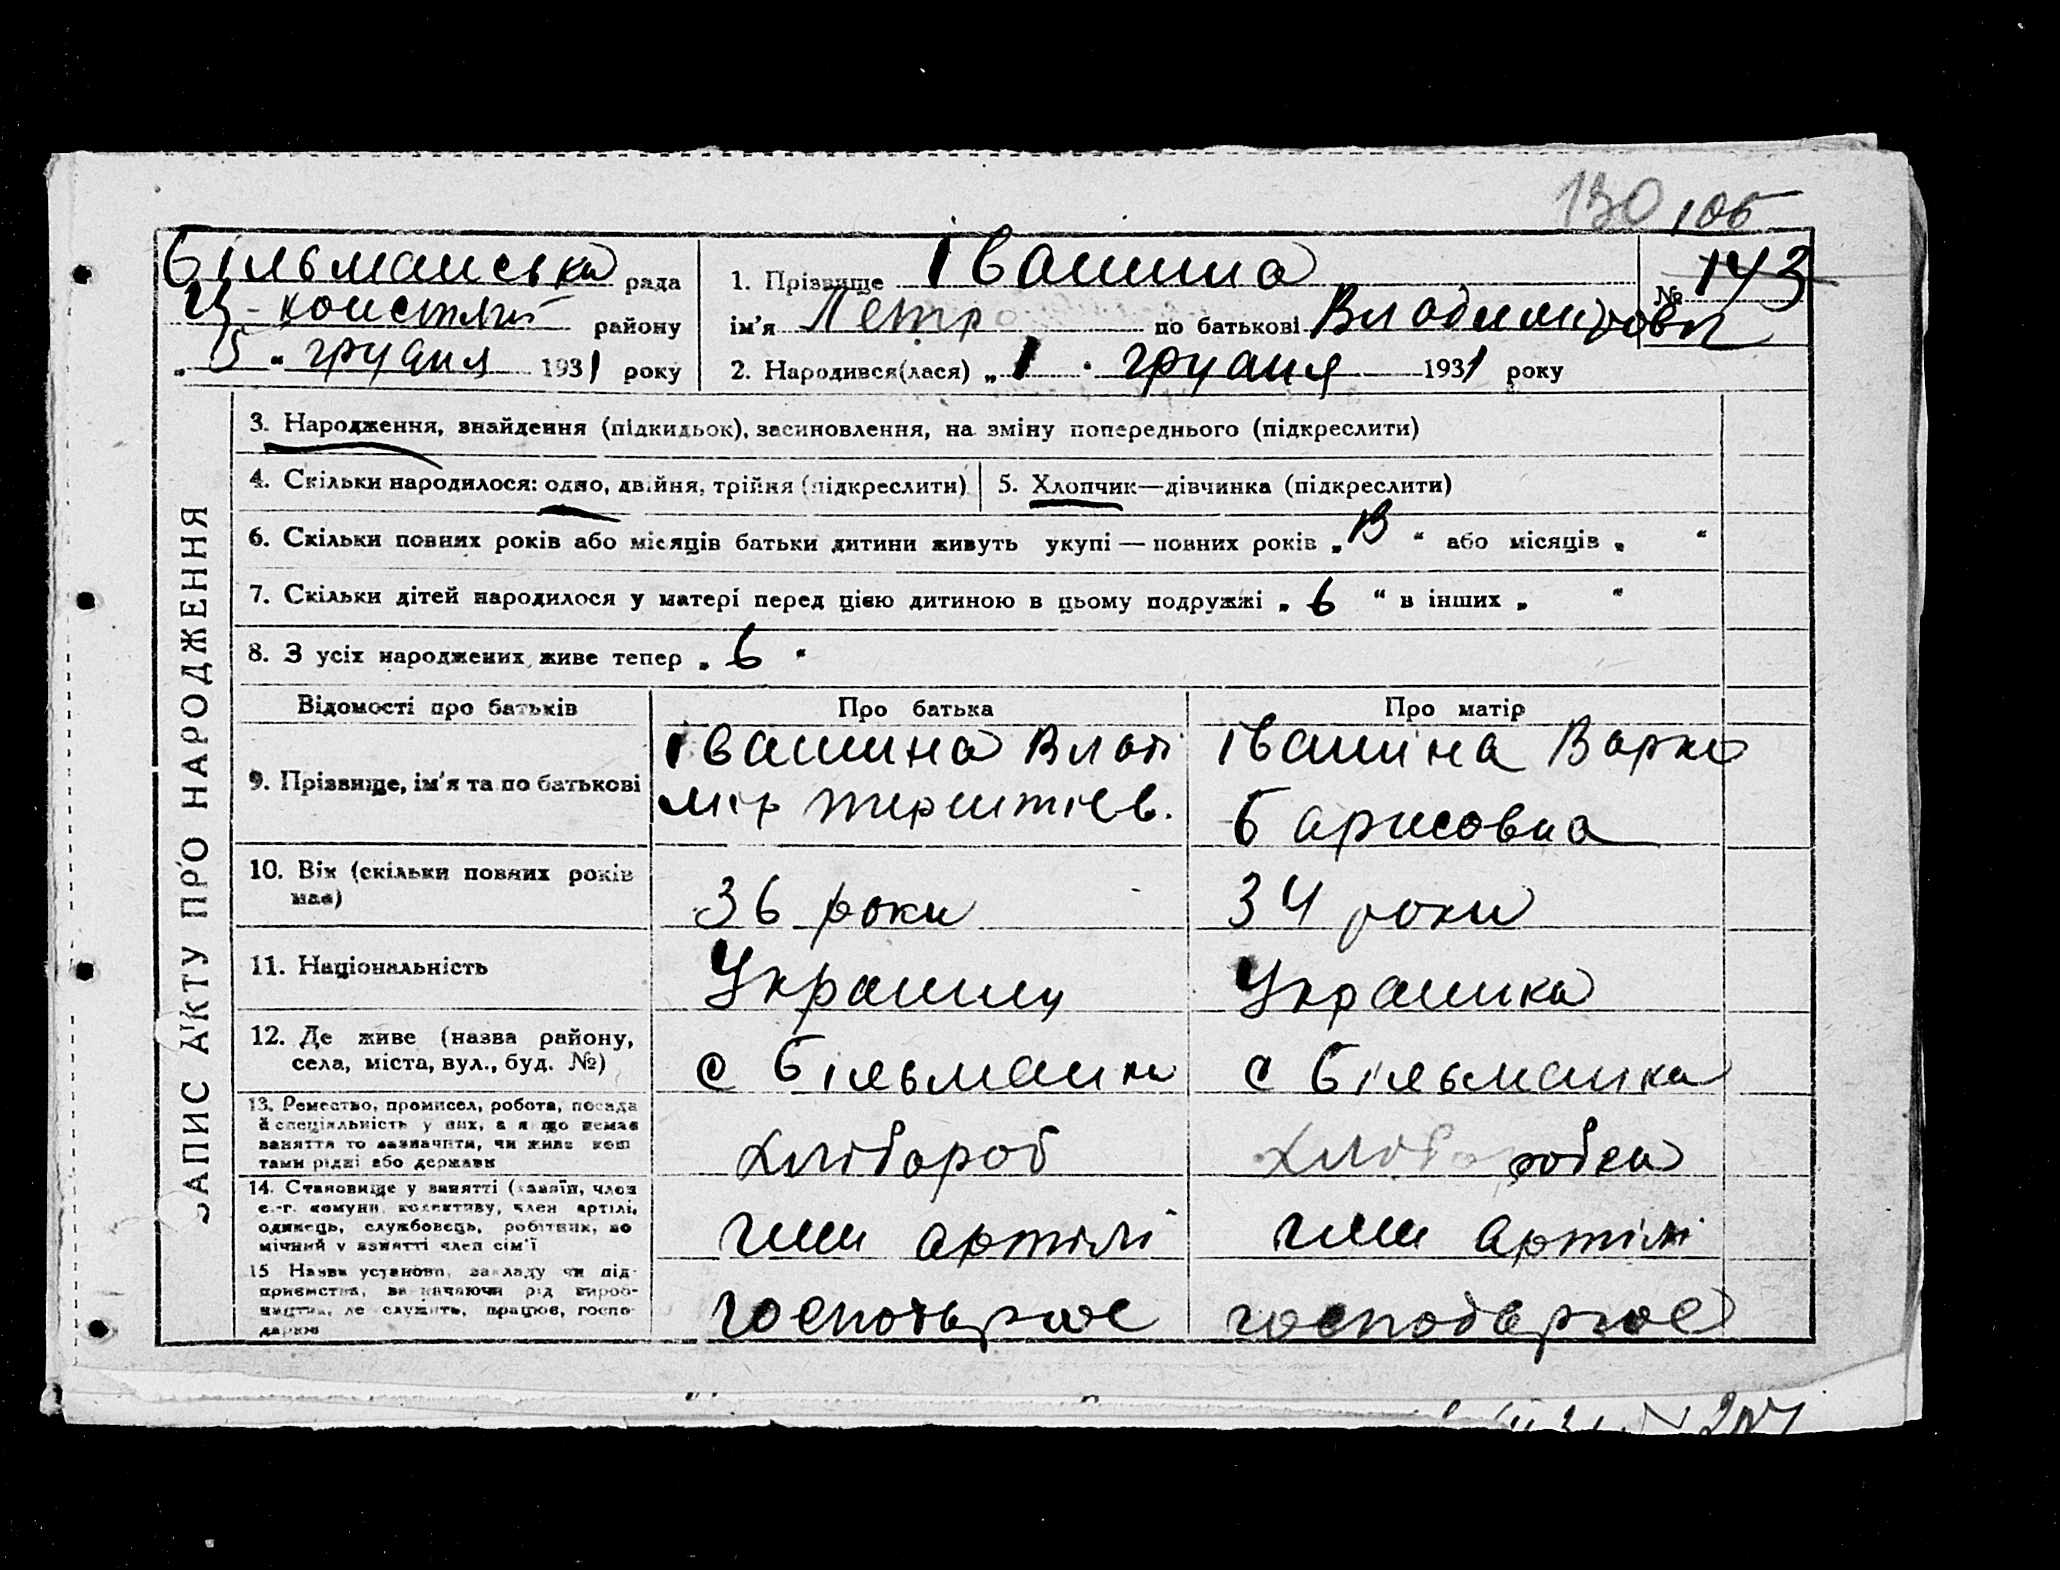 130 106
Більманська рада
Ц-констянт району
„ 5 “ грудня 1931 року
1. Прізвище Івашина
№ 143
ім'я Петр по батькові Владимирови
2. Народився(лася) „ 1 “ грудня 1931 року
ЗАПИС АКТУ ПРО НАРОДЖЕННЯ
3. Народження, знайдення (підкидьок), засиновлення, на зміну попереднього (підкреслити)
4. Скільки народилося: одно, двійня, трійня (підкреслити)
5. Хлопчик—дівчинка (підкреслити)
6. Скільки повних років або місяців батьки дитини живуть укупі — повних років „ “ або місяців „ “
7. Скільки дітей народилося у матері перед цією дитиною в цьому подружжі „ 6 “ в інших „ “
8. З усіх народжених живе тепер „ 6 “
Відомості про батьків
Про батька
Про матір
9. Прізвище, ім'я та по батькові
Івашина Влаті
мір
Івашина Варка
Барисовна
10. Вік (скільки повних років
має)
36 роки
34 роки
11. Національність
Українц
Украінка
12. Де живе (назва району,
села, міста, вул., буд. №)
с Більманка
с Більманка
13. Ремество, промисел, робота, посада
й спеціяльність у них, а якщо немає
заняття то зазначити, чи живе кош
тами рідні або держави
хлібароб
хлібаробка
14. Становище у занятті (хазяїн, член
с.-г. комуни, колективу, член артілі,
одинець, службовець, робітник, по
мічний у занятті член сім'ї
член артілі
член артілі
15 Назва установи, закладу чи під-
приємства, зазначаючи рід вироб-
ництва, де служить, працює, госпо-
дарює
господарює
господарює